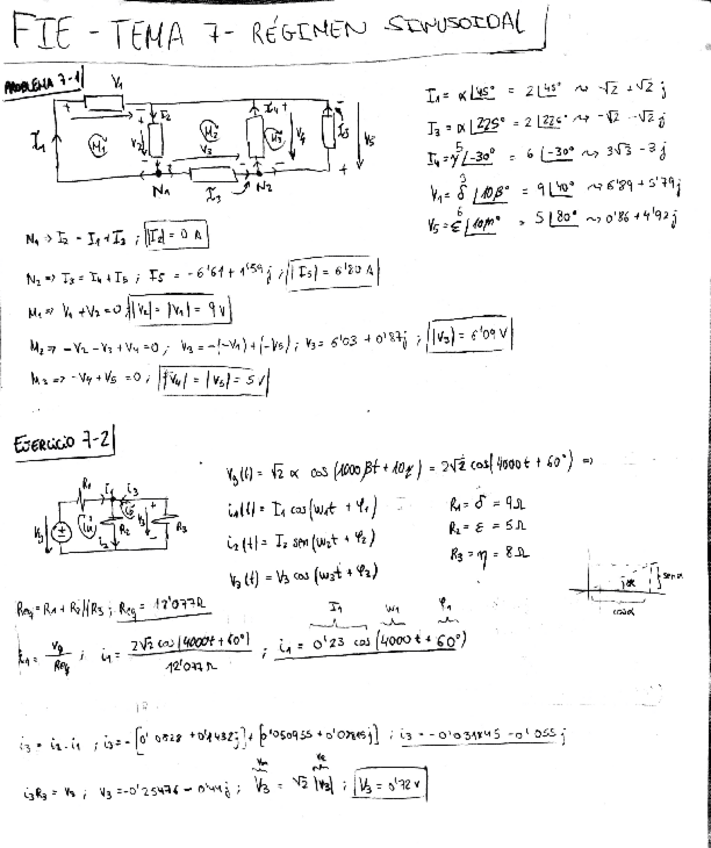 FIE - TEMA 7 - RÉGIMEN SINUSOIDAL
PROBLEMA 7-1
V1
I1 + - + I2 M1 V2 M2 V3 I4 + M3 V4 I5 V5
N1 I3 N2
I1 = α∠45° = 2∠45° ~> √2 + √2 j
I3 = α∠225° = 2∠225° ~> -√2 - √2 j
I4 = γ∠-30° = 6∠-30° ~> 3√3 - 3j
V1 = δ∠10β° = 9∠40° ~> 6'89 + 5'79j
V5 = ε∠10η° = 5∠80° ~> 0'86 + 4'92j
N1 => I2 = I1 + I3 ; |I2| = 0 A
N2 => I3 = I4 + I5 ; I5 = -6'61 + 1'59 j ; |I5| = 6'80 A
M1 => V1 + V2 = 0 ; |V2| = |V1| = 9 V
M2 => -V2 - V3 + V4 = 0 ; V3 = -(-V1) + (-V5) ; V3 = 6'03 + 0'87j ; |V3| = 6'09 V
M3 => -V4 + V5 = 0 ; |V4| = |V5| = 5 V
EJERCICIO 7-2
Vg(t) = √2 α cos (1000βt + 10γ) = 2√2 cos(4000t + 60°) =>
i1(t) = I1 cos(w1t + φ1) R1 = δ = 9Ω
i2(t) = I2 sen(w2t + φ2) R2 = ε = 5Ω
V3(t) = V3 cos(w3t + φ3) R3 = η = 8Ω
Vg R1 I1 i3 R2 i2 V3 R3
jα senα
cosα
Req = R1 + R2//R3 ; Req = 12'077Ω
I1 w1 φ1
i1 = Vg/Req ; i1 = 2√2 cos(4000t + 60°)/12'077Ω ; i1 = 0'23 cos(4000t + 60°)
i3 = i2 - i1 ; i3 = -[0'0828 + 0'1432j] + [0'050955 + 0'08815j] ; i3 = -0'031845 - 0'055j
i3R3 = V3 ; V3 = -0'25476 - 0'44j ; V3 = √2 |V3| ; V3 = 0'72 V